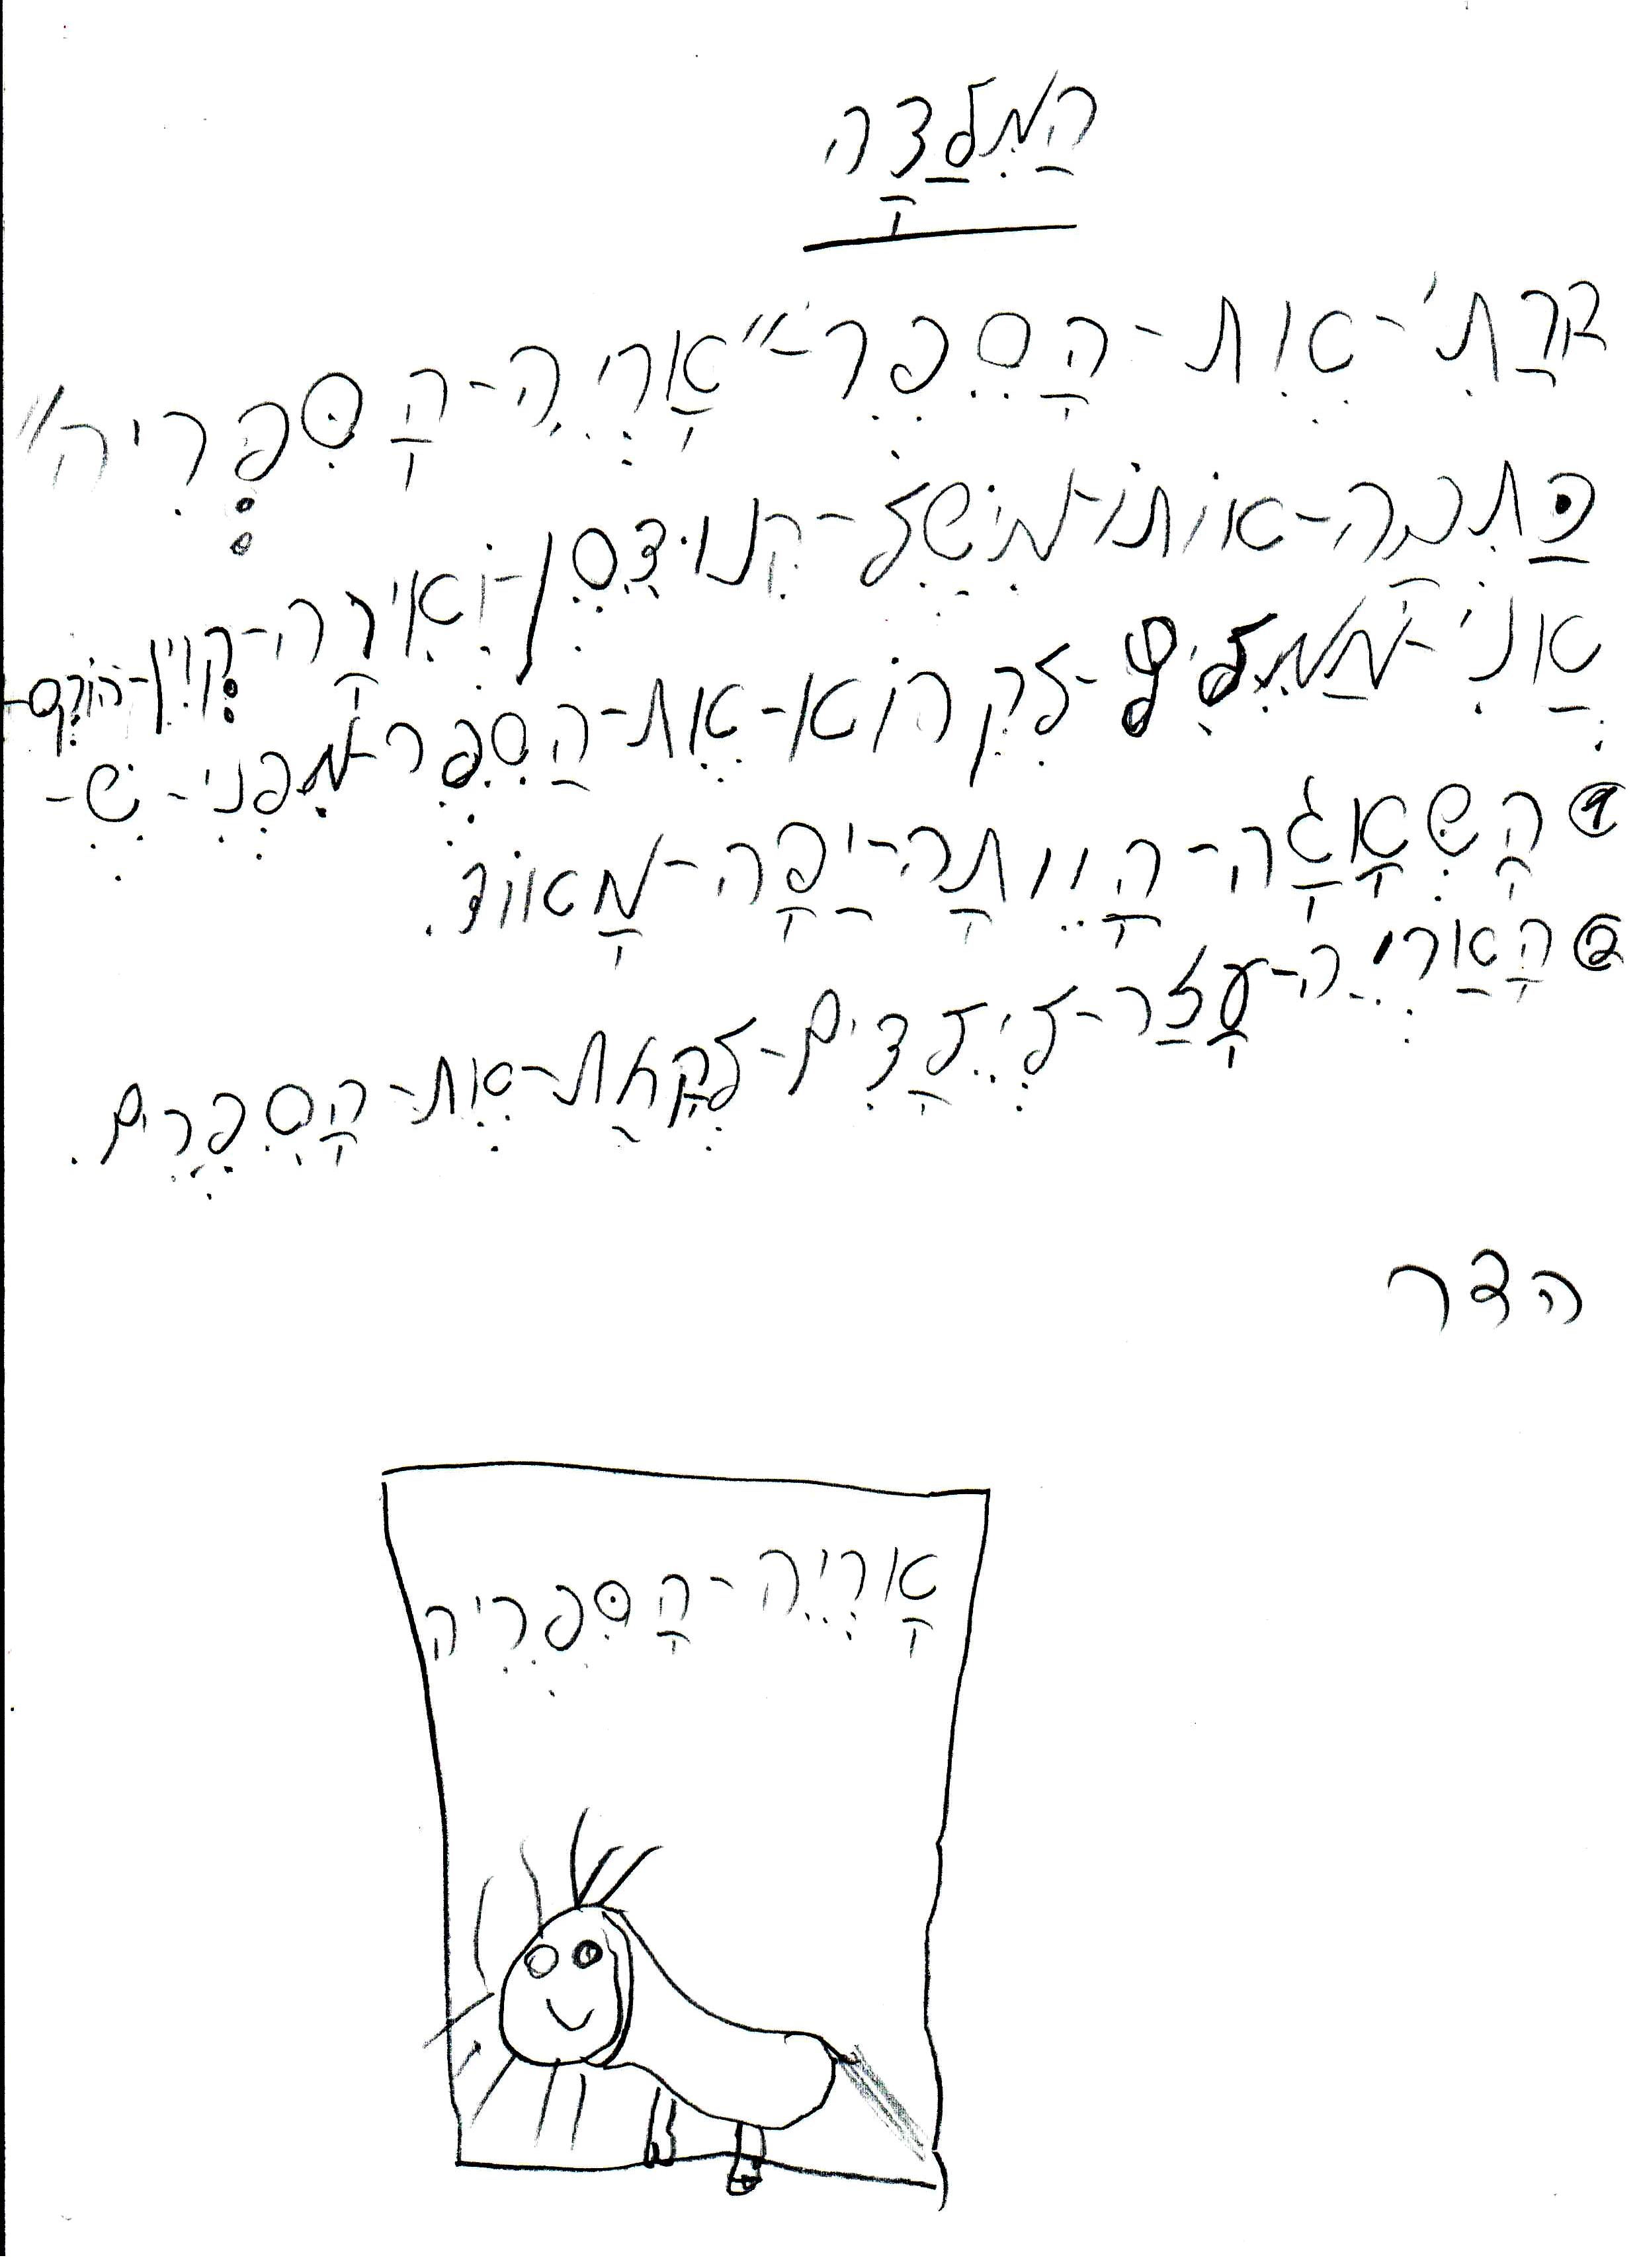 הַמִלַדָה
קרַתִ'-אֶת-הָסֵפֶר-"אָרְיֵה-הָסִפְּרִיה"
כַּתְבָה-אוֹתוֹ-מִישֶל-קְנוּדְסֶן-וְאִירָה-קְוִין-הוֹקֶס-
אֲנִי-מַמְלִיץ-לִקְרוֹא-אֶת-הַסֵפֶר-מִפְּנֵי-שֶ-
1 הָשְאָגָה-הָיְיתָה-יַפָה-מָאוֹד.
2 הָאַרְיֵה-עָזַר-לְיֵלָדִים-לָקַחת-אֶת-הָסִפְרִים.
הדר
אָרְיֵה-הָסִפְּרִיה